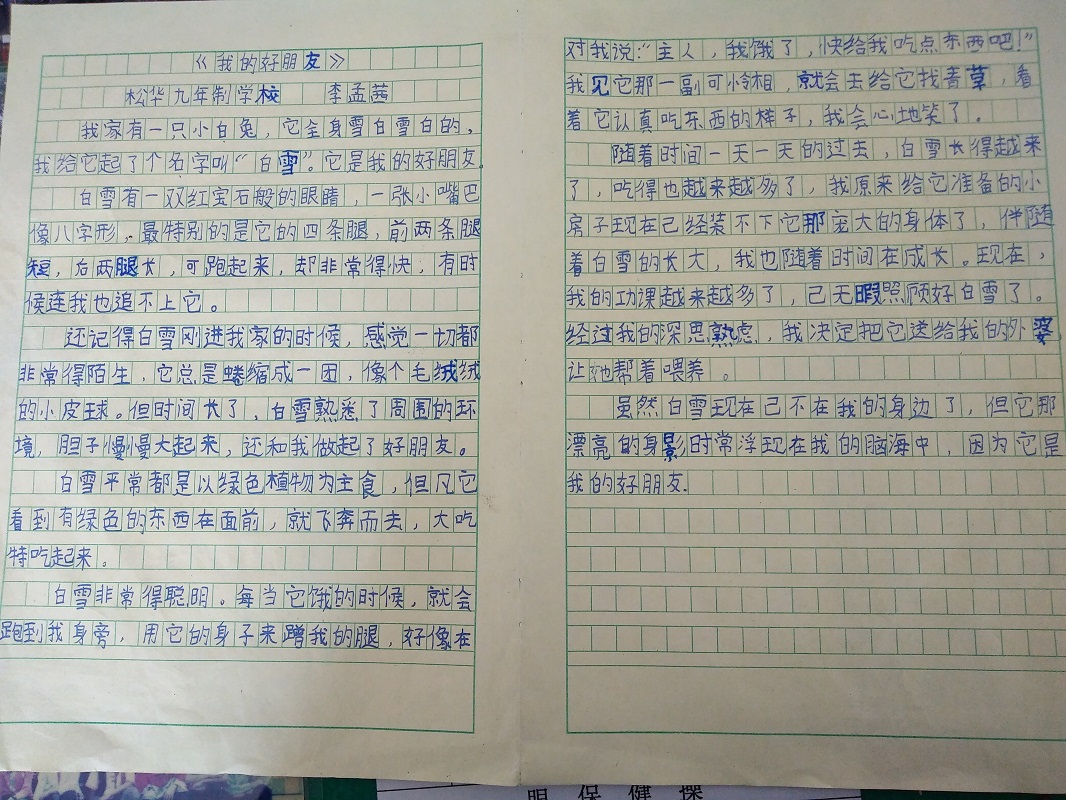 《我的好朋友》
松华九年制学校 李孟茜
我家有一只小白兔，它全身雪白雪白的，
我给它起了个名字叫“白雪”。它是我的好朋友
白雪有一双红宝石般的眼睛，一张小嘴巴
像八字形，最特别的是它的四条腿，前两条腿
短，后两腿长，可跑起来，却非常得快，有时
候连我也追不上它。
还记得白雪刚进我家的时候，感觉一切都
非常得陌生，它总是蜷缩成一团，像个毛绒绒
的小皮球。但时间长了，白雪熟悉了周围的环
境，胆子慢慢大起来，还和我做起了好朋友。
白雪平常都是以绿色植物为主食，但凡它
看到有绿色的东西在面前，就飞奔而去，大吃
特吃起来。
白雪非常得聪明。每当它饿的时候，就会
跑到我身旁，用它的身子来蹭我的腿，好像在
对我说：“主人，我饿了，快给我吃点东西吧！”
我见它那一副可怜相，就会去给它找青草，看
着它认真吃东西的样子，我会心地笑了。
随着时间一天一天的过去，白雪长得越来
了，吃得也越来越多了，我原来给它准备的小
房子现在已经装不下它那宠大的身体了，伴随
着白雪的长大，我也随着时间在成长。现在，
我的功课越来越多了，已无暇照顾好白雪了。
经过我的深思熟虑，我决定把它送给我的外婆
让她帮着喂养。
虽然白雪现在已不在我的身边了，但它那
漂亮的身影时常浮现在我的脑海中，因为它是
我的好朋友.
眼保健操